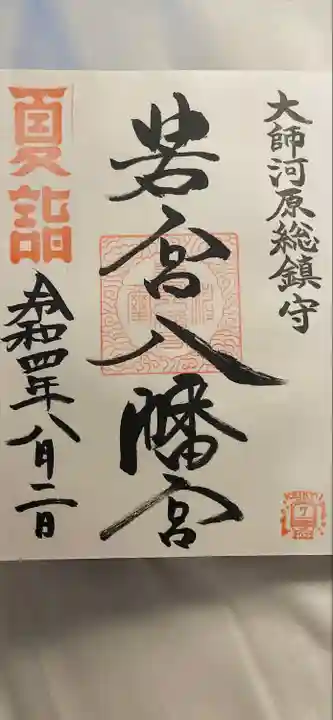 大師河原総鎮守
若宮八幡宮
夏詣
令和四年八月二日
KEIKYU